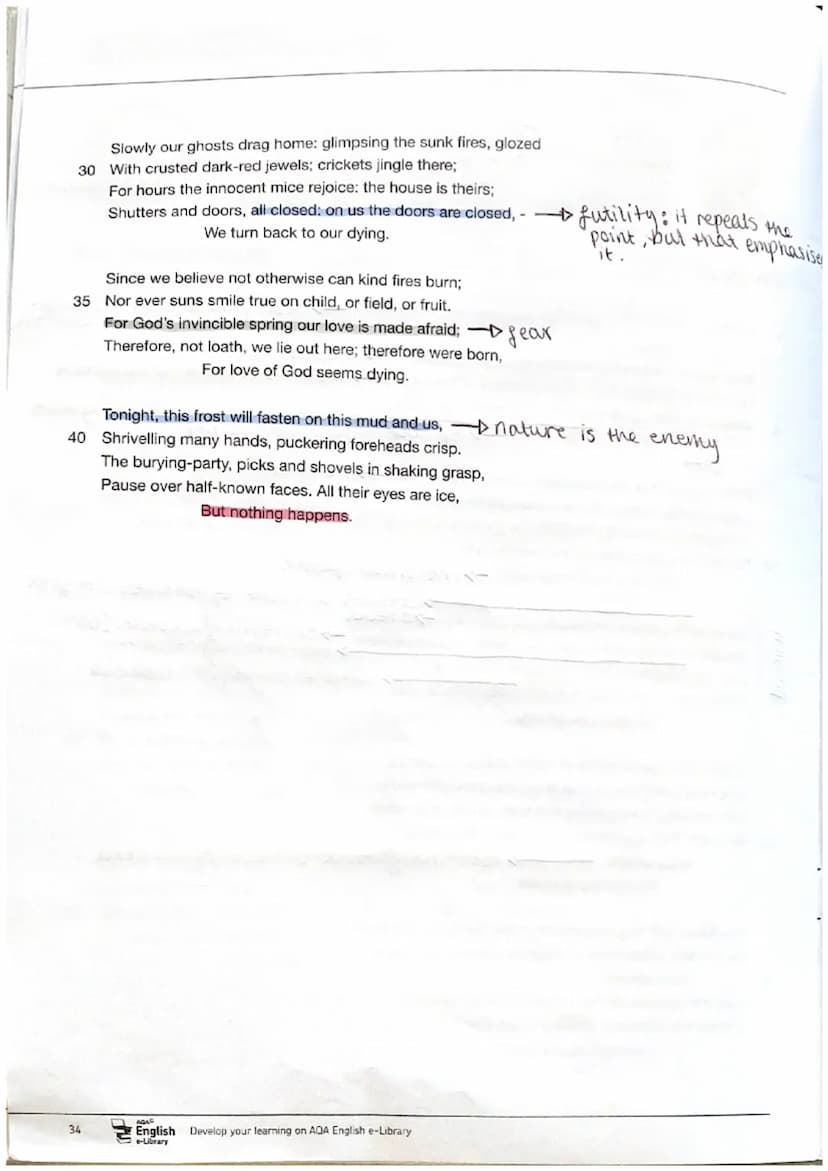 Slowly our ghosts drag home: glimpsing the sunk fires, glozed
30 With crusted dark-red jewels; crickets jingle there;
For hours the innocent mice rejoice: the house is theirs;
Shutters and doors, all closed: on us the doors are closed, - → futility: it repeats the
point, but that emphasise
it.
We turn back to our dying.
Since we believe not otherwise can kind fires burn;
35 Nor ever suns smile true on child, or field, or fruit.
For God's invincible spring our love is made afraid; → fear
Therefore, not loath, we lie out here; therefore were born,
For love of God seems dying.
Tonight, this frost will fasten on this mud and us, → nature is the enemy
40 Shrivelling many hands, puckering foreheads crisp.
The burying-party, picks and shovels in shaking grasp,
Pause over half-known faces. All their eyes are ice,
But nothing happens.
34 AQA English e-Library Develop your learning on AQA English e-Library